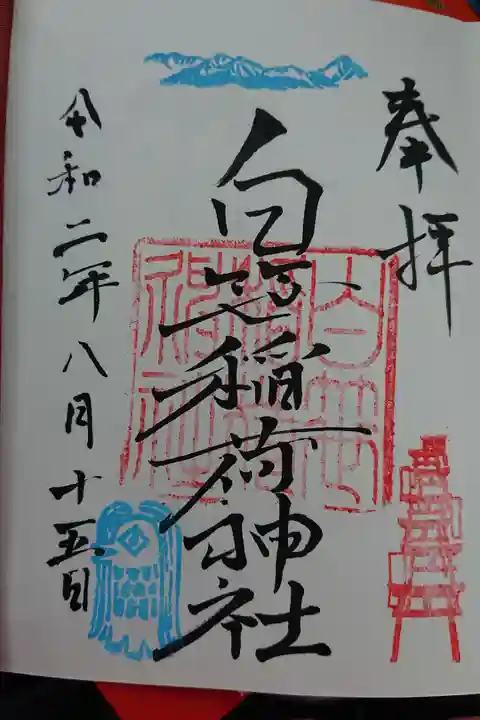 奉拝
白笹稲荷神社
令和二年八月十五日